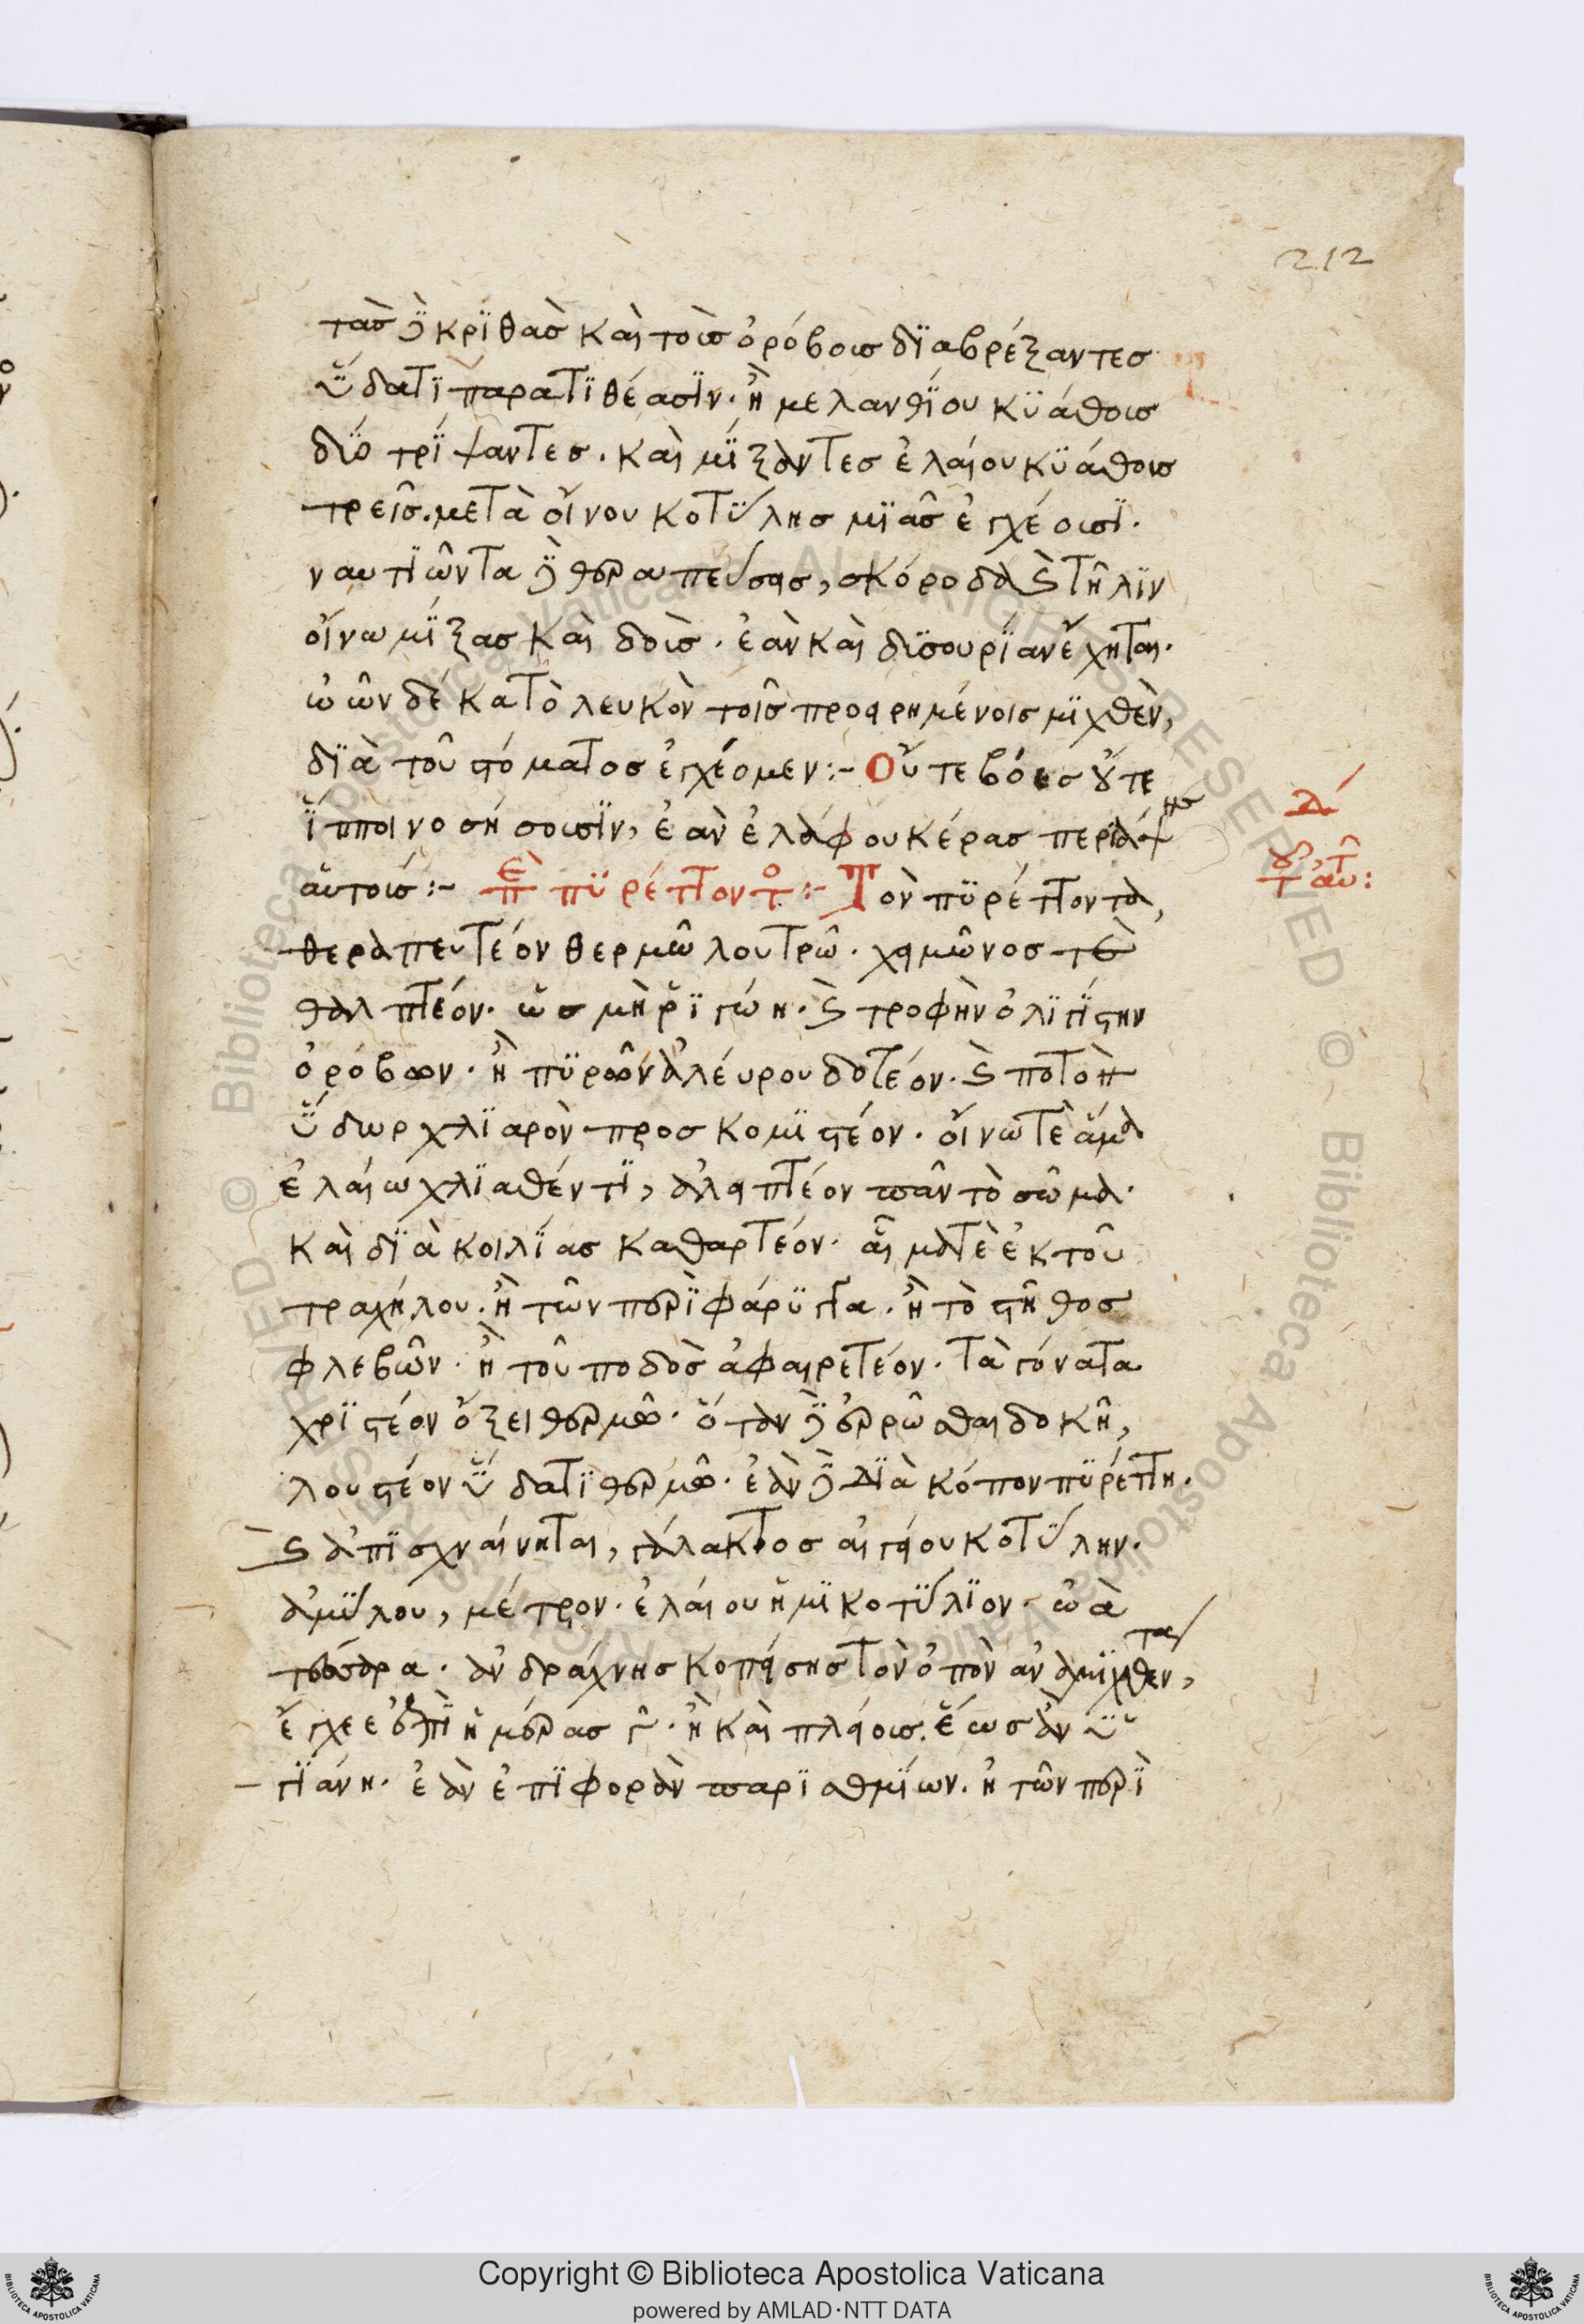 212
τὰσ δὲ κρϊθὰσ καὶ τοὺσ ὀρόβουσ δϊαβρέξαντεσ
ὕδατϊ παρατϊθέασϊν· ἢ μελανθΐου κϋάθουσ
δΰο τρΐψαντεσ· καὶ μΐξαντεσ ἐλαίου κϋάθουσ
τρεῖσ. μετὰ οἴνου κοτΰλησ μϊᾶσ ἐγχέουσϊ·
ναυτϊῶντα δὲ θεραπεύσεισ, σκόροδα καὶ τῆλϊν
οἴνω μΐξασ καὶ δοὺσ· ἐὰν καὶ δϋσουρΐαν ἔχηται·
ὠῶν δὲ κατὸ λευκὸν τοῖσ προειρημένοισ μϊχθὲν,
δϊὰ τοῦ στόματοσ ἐγχέομεν:- Οὔτε βόεσ οὔτε
ἵπποι νοσήσουσϊν, ἐὰν ἐλάφου κέρασ περϊάψησ
αὐτοῖσ:- πϋρέττοντ:- Τὸν πϋρέττοντα,
θεραπευτέον θερμῶ λουτρῶ· χειμῶνοσ τὲ
θαλπτέον· ὡσ μὴ ῥϊγώη· καὶ τροφὴν ὀλϊγΐστην
ὀρόβων· ἢ πϋρῶν ἀλέυρου δοτέον· καὶ ποτὸν
ὕδωρ χλϊαρὸν προσκομϊστέον· οἴνωτὲ ἅμα
ἐλαίω χλϊαθέντϊ, ἀλειπτέον πᾶν τὸ σῶμα·
καὶ δϊὰ κοιλΐασ καθαρτέον· αἷμάτὲ ἐκ τοῦ
τραχήλου· ἢ τῶν περὶ φάρϋγγα· ἢ τὸ στῆθοσ
φλεβῶν· ἢ τοῦ ποδὸσ ἀφαιρετέον· τὰ γόνατα
χρϊστέον ὄξει θερμῶ· ὅταν δὲ ἐρρῶσθαι δοκῆ,
λουστέον ὕδατϊ θερμῶ· ἐὰν δὲ δϊὰ κόπον πϋρέττη·
καὶ ἀπϊσχναίνηται, γάλακτοσ αἰγείου κοτΰλην·
ἀμΰλου, μέτρον· ἐλαίου ἡμϊκοτΰλϊον· ὠὰ
τέσσαρα· ἀνδράχνησ κοπείσησ τὸν ὀπὸν
ἡμέρασ γ· ἢ καὶ πλείουσ· ἕωσ ἂν ὑ
γϊάνη· ἐὰν ἐπϊφορὰν παρϊσθμΐων· ἢ τῶν περὶ
Copyright © Biblioteca Apostolica Vaticana
powered by AMLAD·NTT DATA